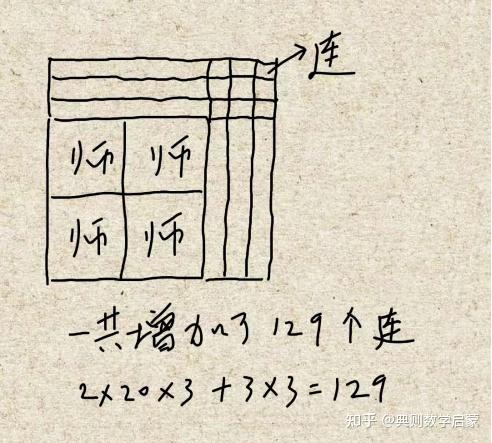 连
师 师
师 师
一共增加了129个连
2×20×3+3×3=129
知乎 @典则数学启蒙